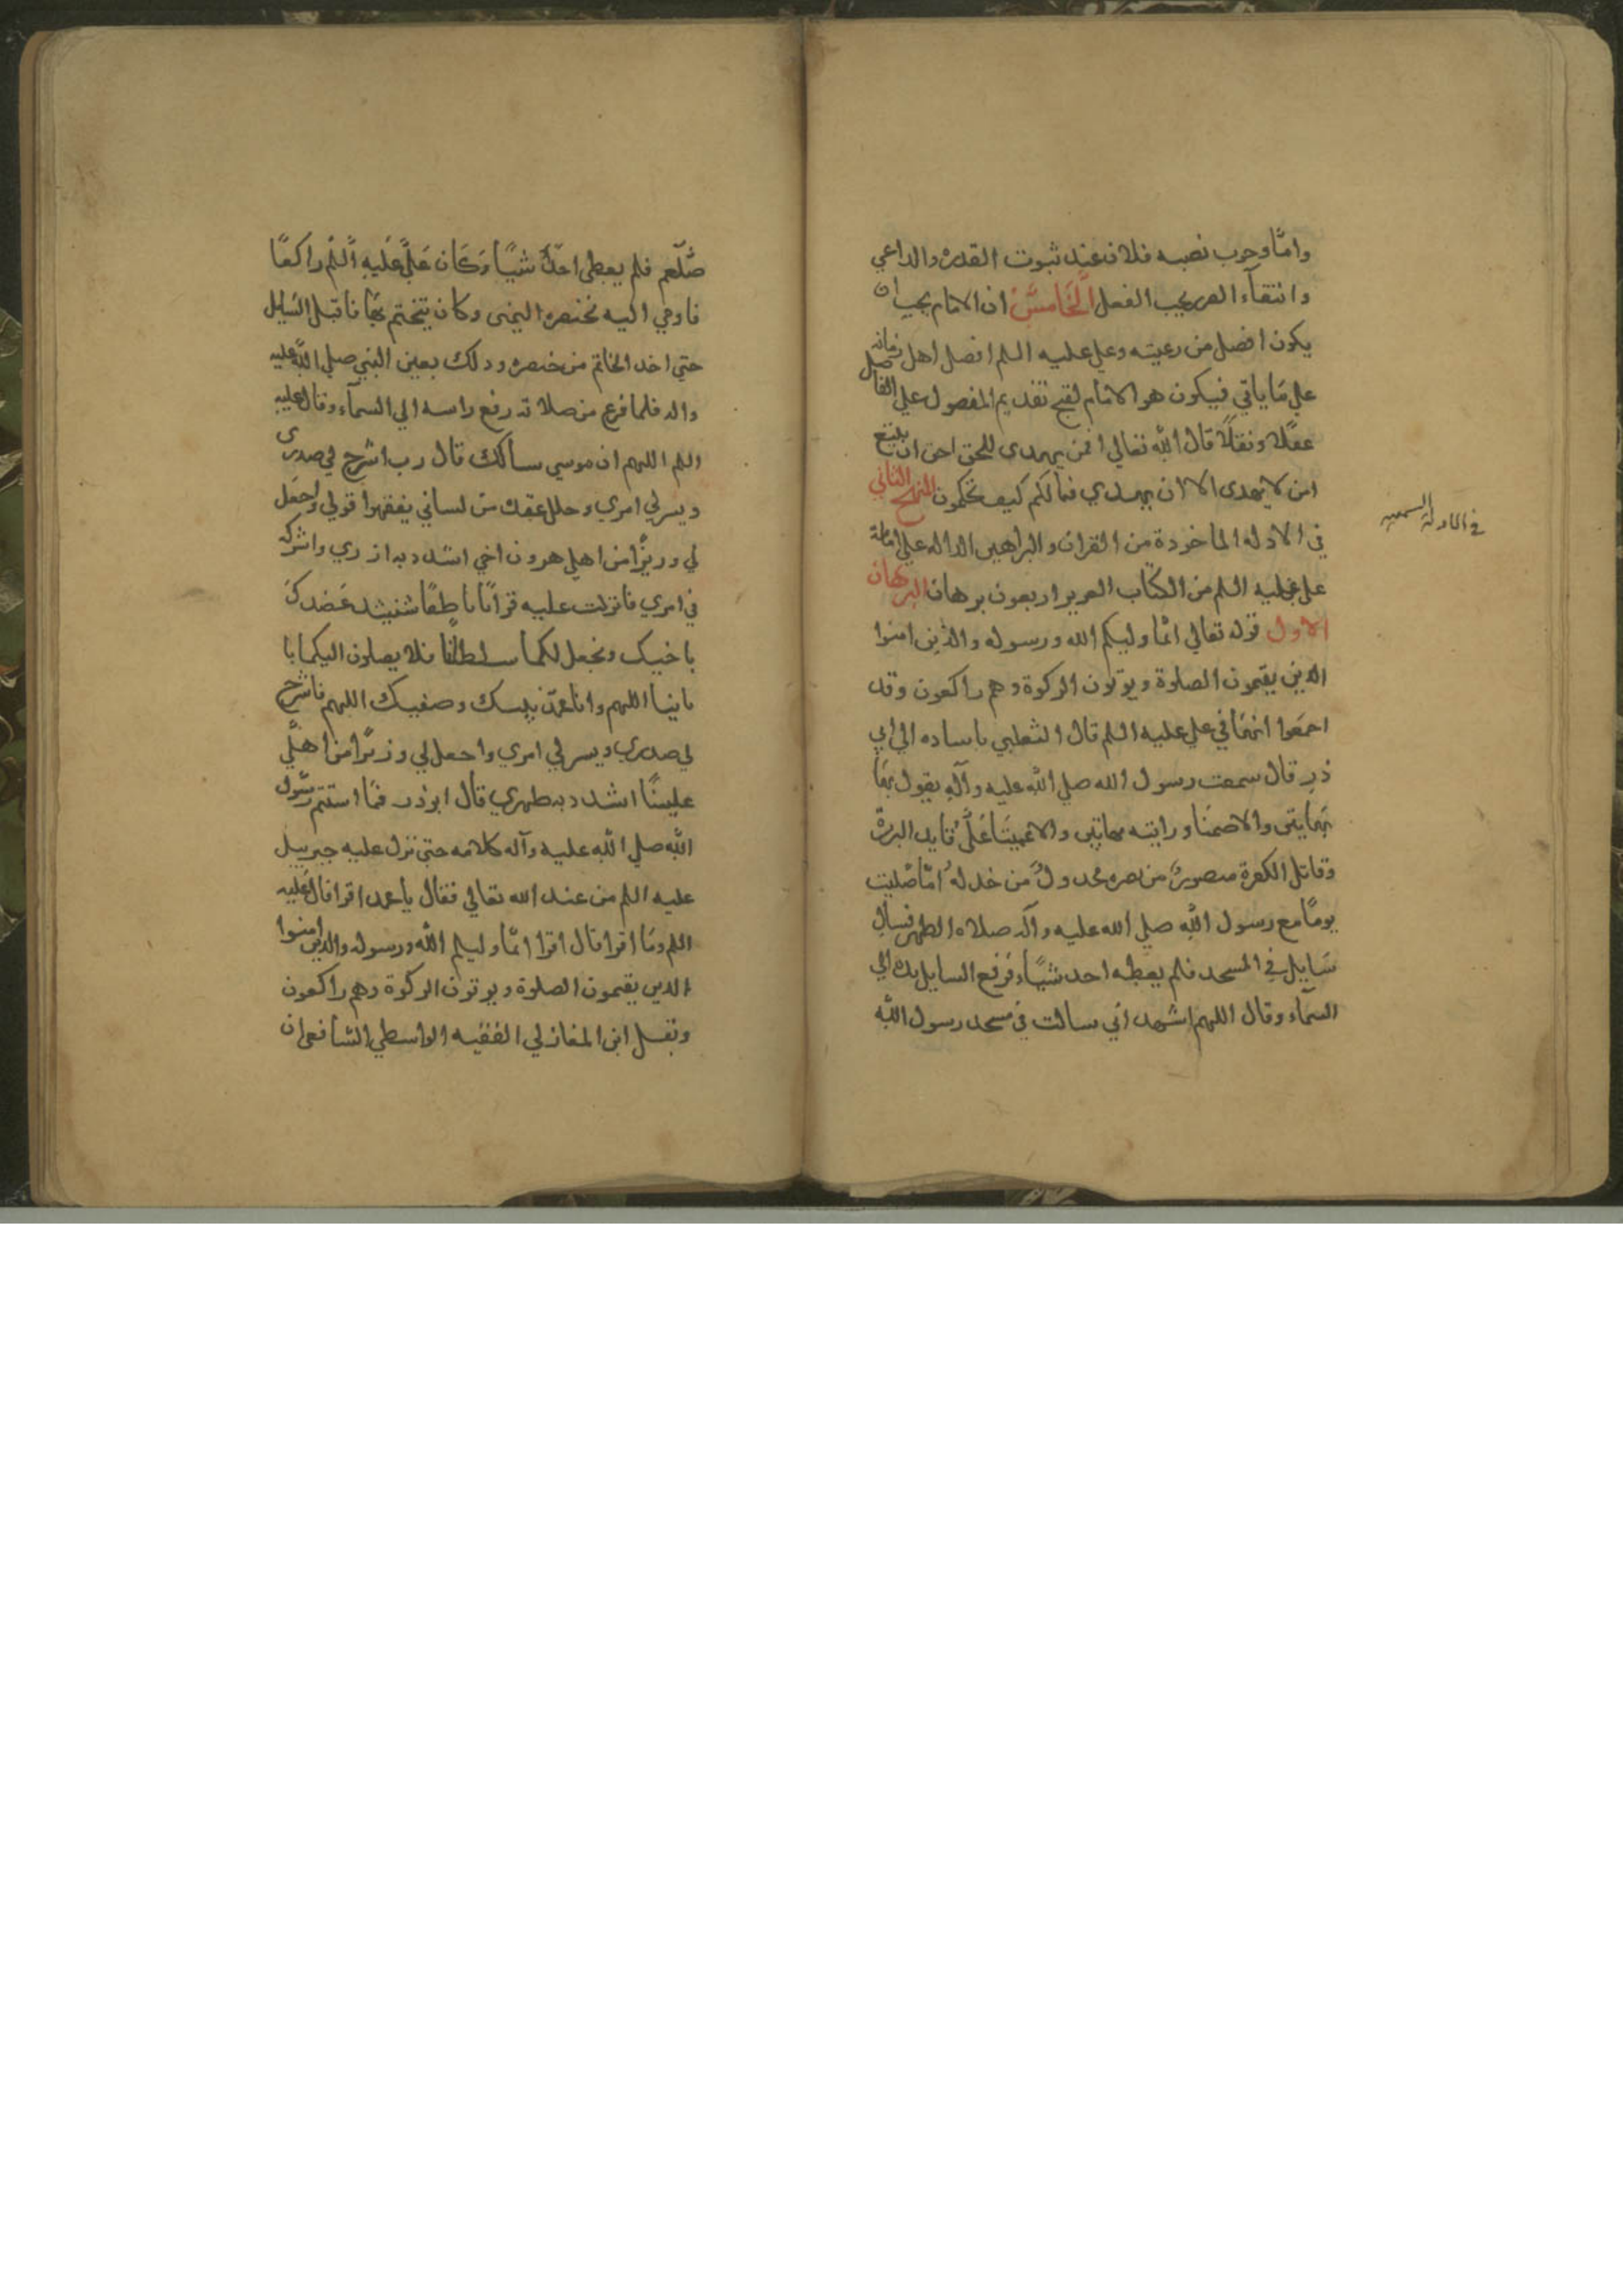 واما وجوب نصبه فلان عند ثبوت القدره والداعي
وانتفاء الصر يجب الفعل الخامس ان الامام يجب ان
يكون افضل من رعيته وعلي عليه السلم افضل اهل زمانه
علي ما ياتي فيكون هو الامام لقبح تقديم المفصول علي الفاصل
عقلا ونقلا قال الله تعالي افمن يهدى للحق احق ان يتبع
امن لا يهدى الا ان يهدي فمالكم كيف تحكمون المنهج الثاني
في الادلة السمعيه
في الادله الماخوذة من القران والبراهين الداله علي امامة
علي عليه السلم من الكتاب العزيز اربعون برهان البرهان
الاول قوله تعالي انما وليكم الله ورسوله والذين امنوا
الذين يقيمون الصلوة ويوتون الزكوة وهم راكعون وقد
اجمعوا انها في علي عليه السلم قال الثعلبي باسناده الي ابي
ذر قال سمعت رسول الله صلي الله عليه وآله يقول بها
بهاتين والا صمتا ورايته بهاتين والا عميتا علي قايد البررة
وقاتل الكفرة منصور من نصره مخذول من خذله اما صليت
يوما مع رسول الله صلي الله عليه وآله صلاه الظهر فسال
سايل في المسجد فلم يعطه احد شيا فرفع السايل يده الي
السماء وقال اللهم اشهد اني سالت في مسجد رسول الله
صلعم فلم يعطى احد شيا وكان علي عليه السلم راكعا
فاومي اليه بخنصره اليمنى وكان يتختم بها فاقبل السايل
حتي اخذ الخاتم من خنصره وذلك بعين النبي صلي الله عليه
واله فلما فرغ من صلاته رفع راسه الي السماء وقال عليه
السلم اللهم ان موسي سالك قال رب اشرح لي صدرى
ويسر لي امري وحلل عقدة من لساني يفقهوا قولي واجعل
لي وزيرا من اهلي هرون اخي اشدد به ازري واشركه
في امري فانزلت عليه قرانا ناطقا سنشد عضدك
باخيك ونجعل لكما سلطانا فلا يصلون اليكما با
ياتنا اللهم وانا محمد نبيك وصفيك اللهم فاشرح
لي صدري ويسر لي امري واجعل لي وزيرا من اهلي
عليا اشدد به ظهري قال ابوذر فما استتم رسول
الله صلي الله عليه وآله كلامه حتى نزل عليه جبرييل
عليه السلم من عند الله تعالي فقال يا محمد اقرا قال عليه
السلم وما اقرا قال اقرا انما وليكم الله ورسوله والذين امنوا
الذين يقيمون الصلوة ويوتون الزكوة وهم راكعون
ونقل ابن المغازلي الفقيه الواسطي الشافعى ان